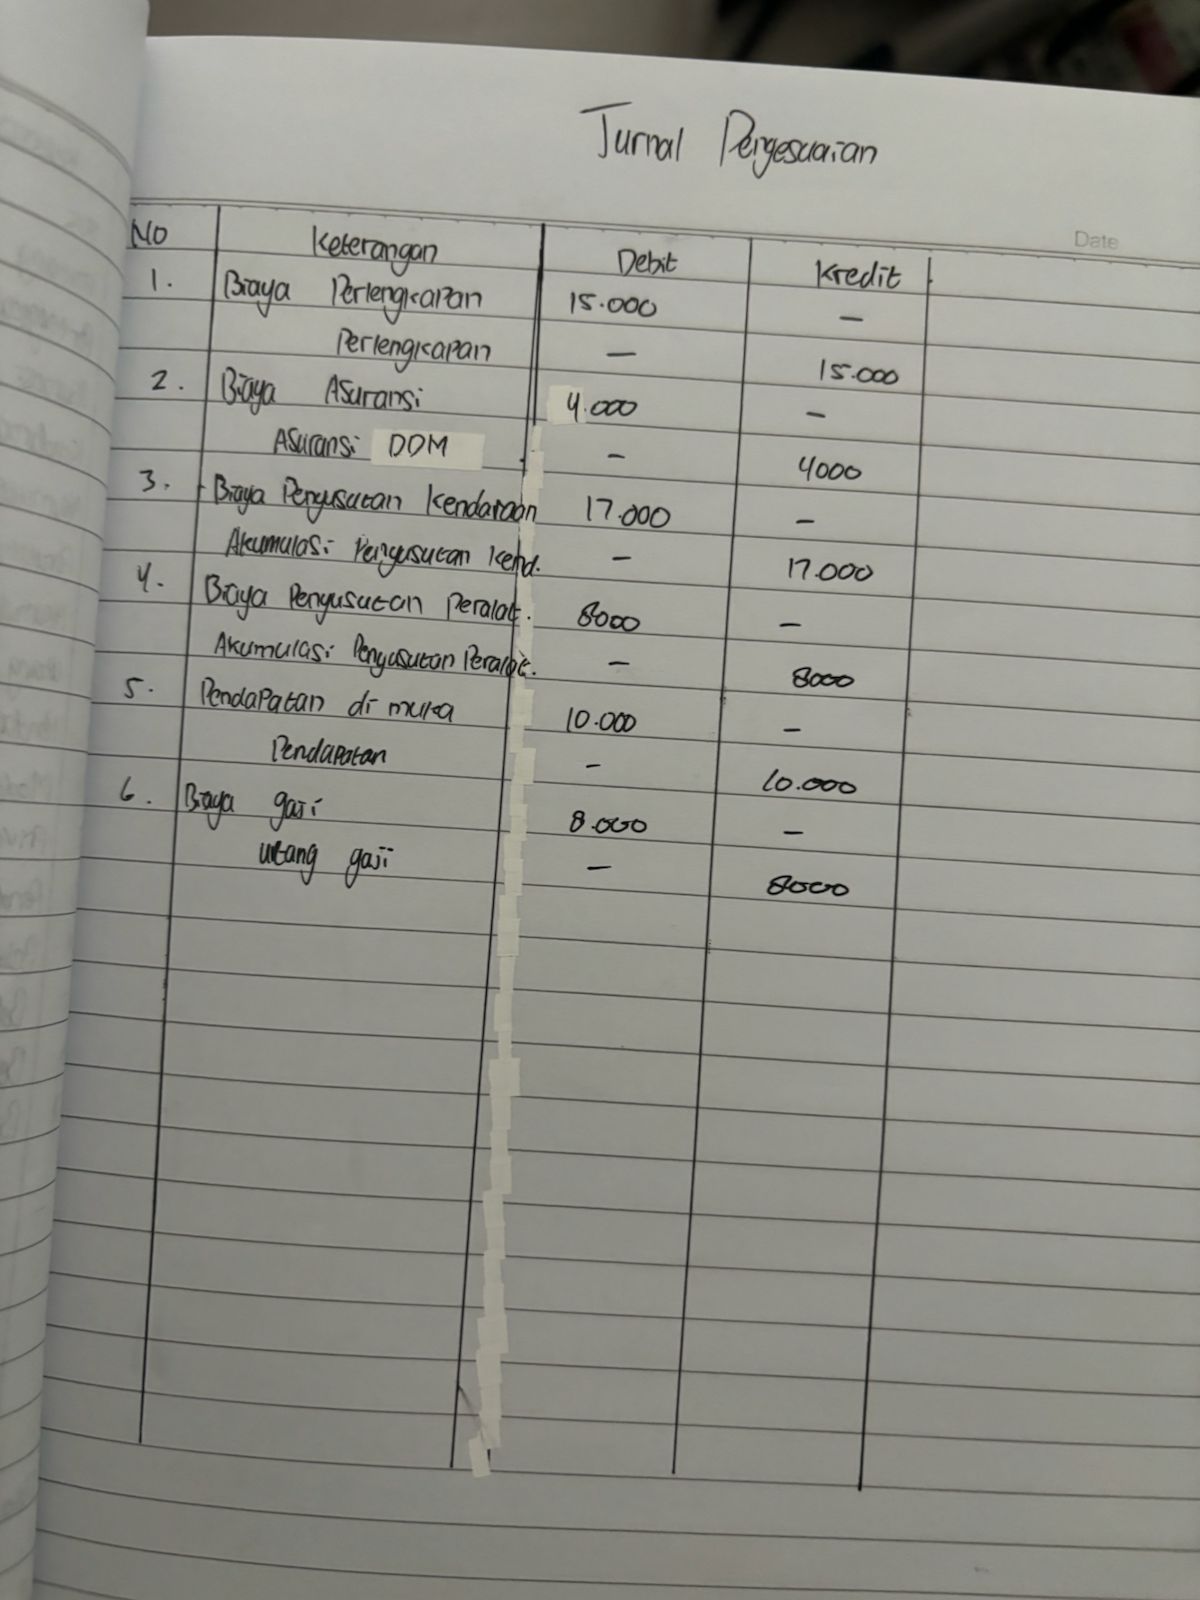 Jurnal Penyesuaian
Date
No Keterangan Debit Kredit
1. Biaya Perlengkapan 15.000 —
Perlengkapan — 15.000
2. Biaya Asuransi 4.000 —
Asuransi DDM - 4000
3. Biaya Penyusutan Kendaraan 17.000 —
Akumulasi Penyusutan Kend. - 17.000
4. Biaya Penyusutan Peralat. 8000 —
Akumulasi Penyusutan Peralat. — 8000
5. Pendapatan di muka 10.000 —
Pendapatan - 10.000
6. Biaya gaji 8.000 —
utang gaji — 8000